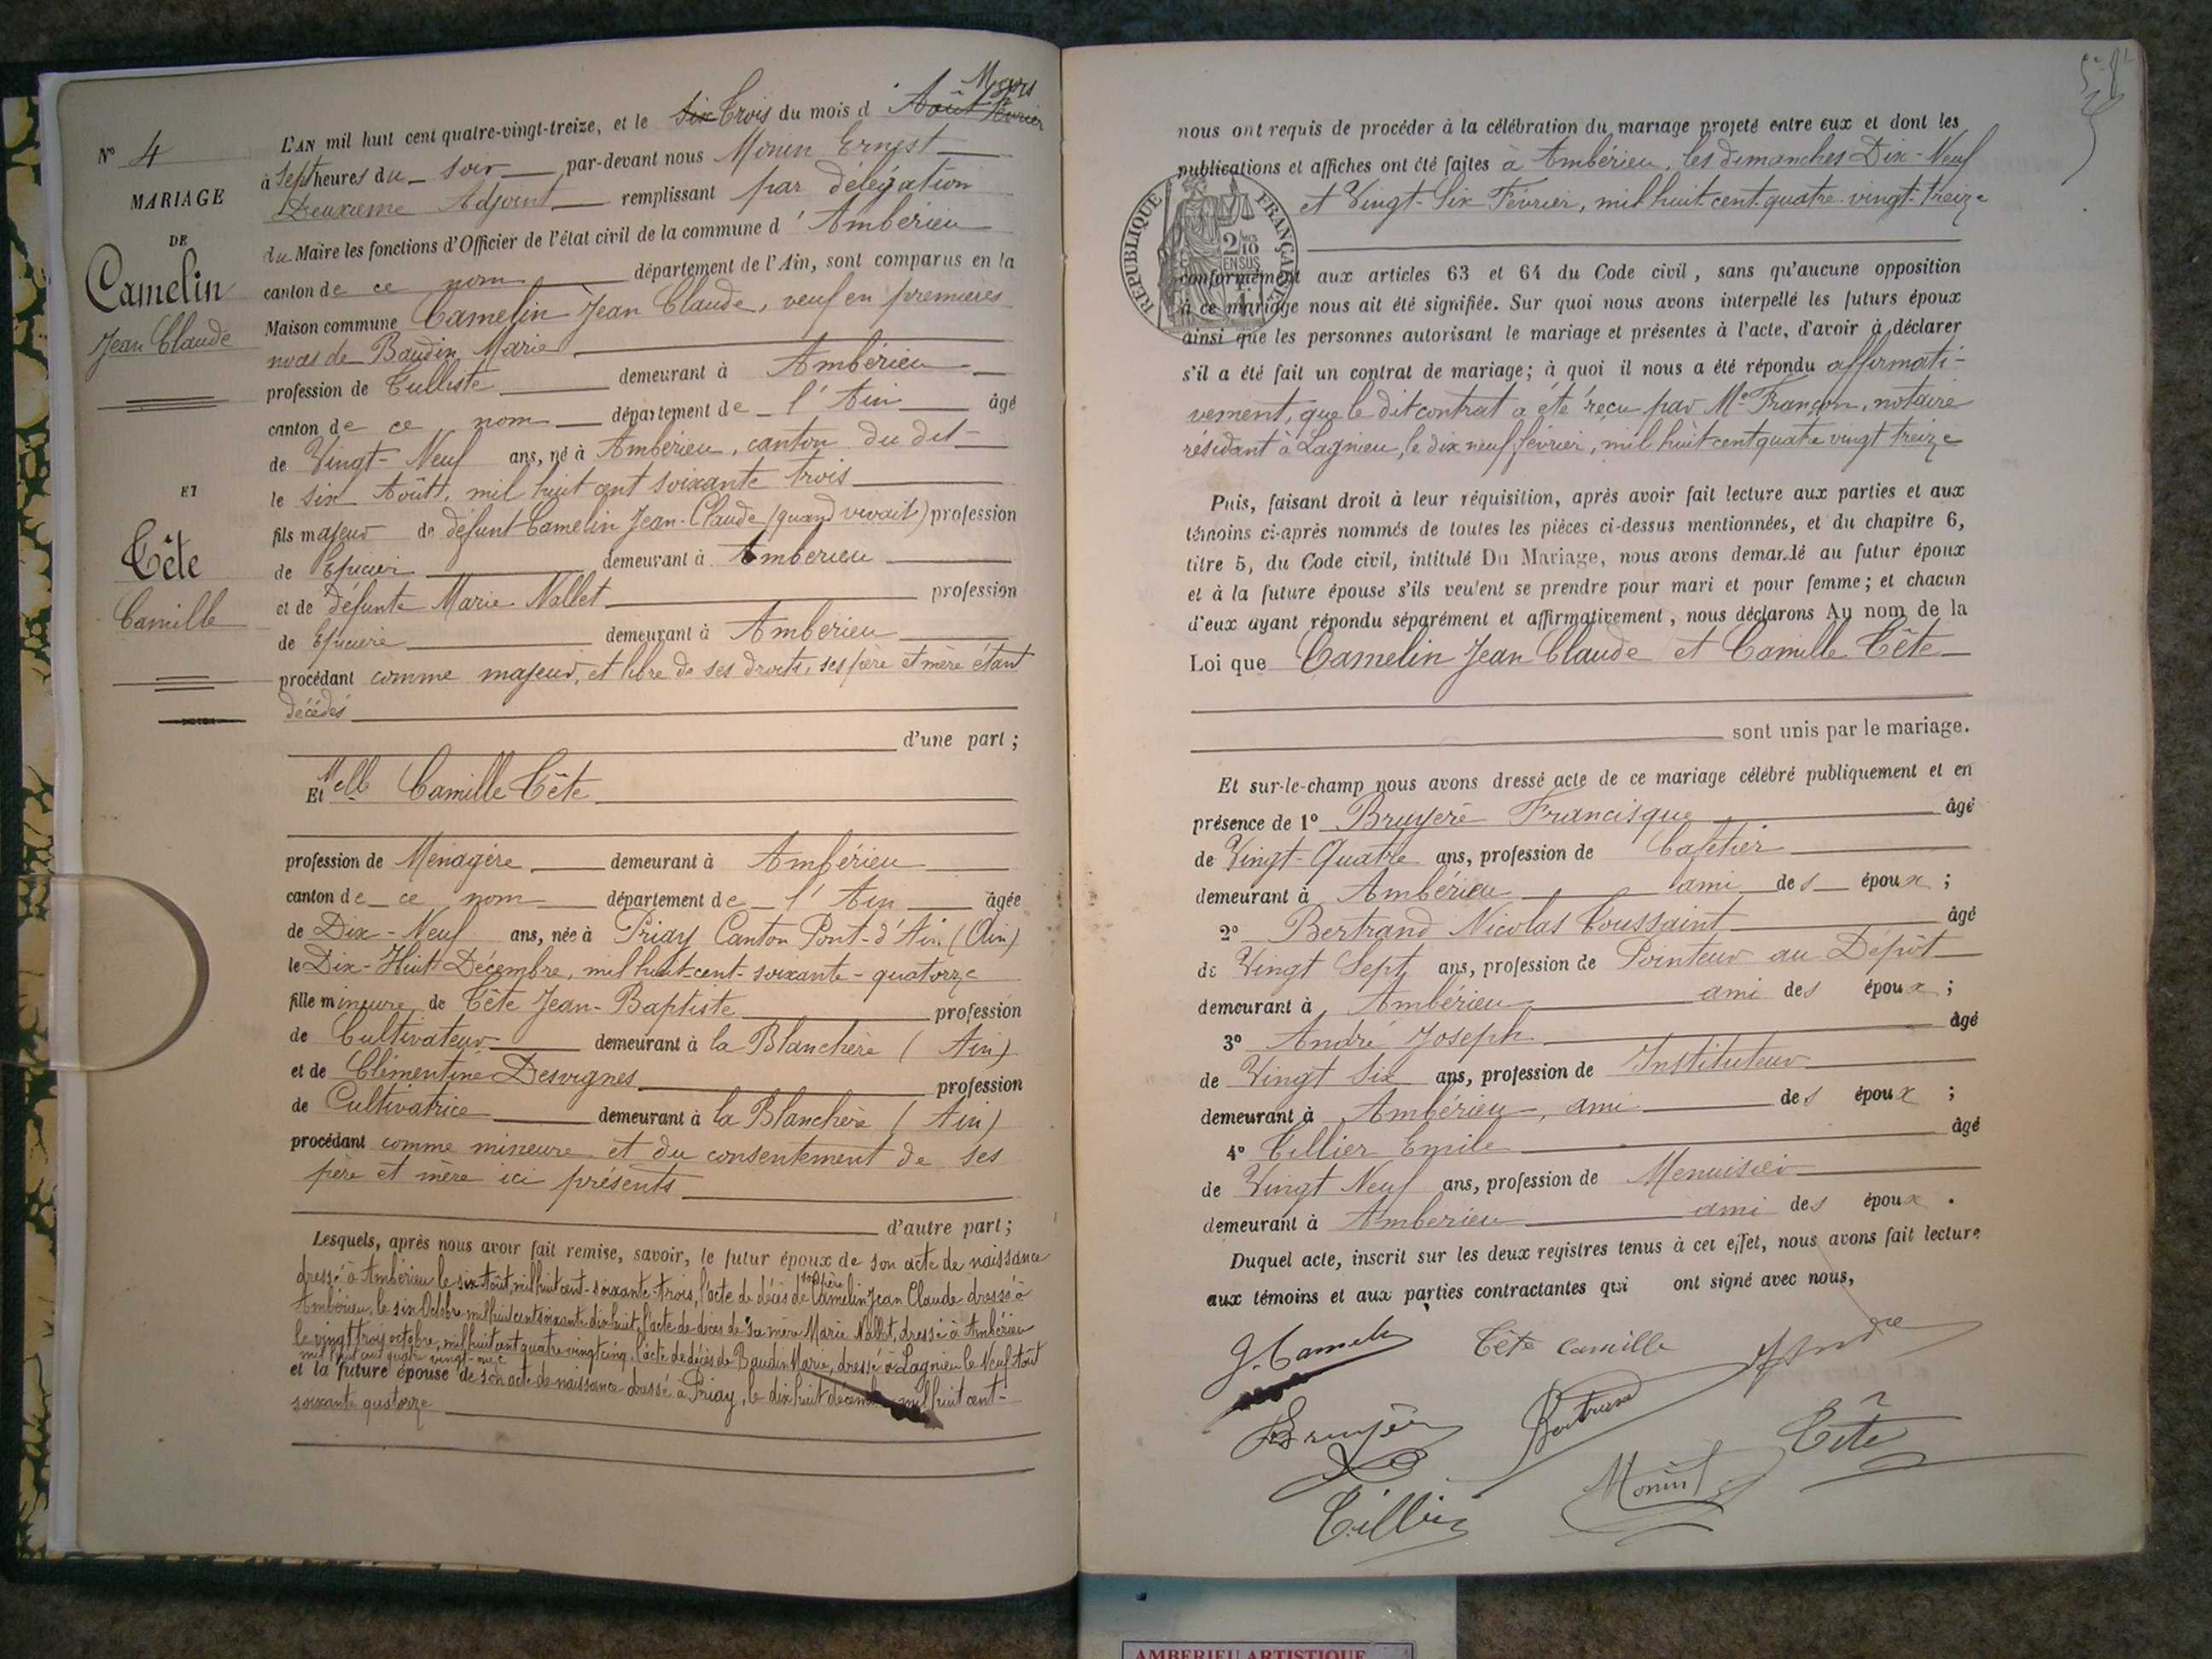 Nº 4
MARIAGE
DE
Camelin
Jean Claude
ET
Tête
Camille
L'AN mil huit cent quatre-vingt-treize, et le six Trois du mois d' Août février Mars
à Sept heures du soir par-devant nous Monin Ernest
Deuxième Adjoint remplissant par délégation
du Maire les fonctions d'Officier de l'état civil de la commune d' Ambérieu
canton de ce nom département de l'Ain, sont comparus en la
Maison commune Camelin Jean Claude, veuf en premières
noces de Baudin Marie
profession de Tulliste demeurant à Ambérieu
canton de ce nom département de l'Ain âgé
de Vingt-Neuf ans, né à Ambérieu, canton du dit
le six Août, mil huit cent soixante trois
fils majeur de défunt Camelin Jean-Claude (quand vivait) profession
de Epicier demeurant à Amberieu
et de défunte Marie Nallet profession
de Epiciere demeurant à Amberieu
procédant comme majeur, et libre de ses droits, ses père et mère étant
décédés
d'une part ;
Et Melle Camille Tête
profession de Ménagère demeurant à Ambérieu
canton de ce nom département de l'Ain âgée
de Dix-Neuf ans, née à Priay Canton Pont-d'Ain (Ain)
le Dix-Huit Décembre, mil huit-cent-soixante-quatorze
fille mineure de Tête Jean-Baptiste profession
de Cultivateur demeurant à la Blanchère (Ain)
et de Clémentine Desvignes profession
de Cultivatrice demeurant à la Blanchère (Ain)
procédant comme mineure et du consentement de ses
père et mère ici présents
d'autre part ;
Lesquels, après nous avoir fait remise, savoir, le futur époux de son acte de naissance
dressé à Ambérieu le six Août, mil huit cent-soixante-trois, l'acte de décès de son père Camelin Jean Claude dressé à
Ambérieu, le six Octobre mil huit cent soixante dix huit, l'acte de décès de sa mère Marie Nallet, dressé à Ambérieu
le vingt trois octobre, mil huit cent quatre vingt cinq, l'acte de décès de Baudin Marie, dressé à Lagnieu le Neuf Août
mil huit cent quatre vingt-onze
et la future épouse de son acte de naissance dressé à Priay, le dix huit décembre mil huit cent-
soixante quatorze
nous ont requis de procéder à la célébration du mariage projeté entre eux et dont les
publications et affiches ont été faites à Ambérieu, les dimanches Dix-Neuf
et Vingt-Six Février, mil huit-cent-quatre-vingt-treize
RÉPUBLIQUE FRANÇAISE
conformément aux articles 63 et 64 du Code civil, sans qu'aucune opposition
à ce mariage nous ait été signifiée. Sur quoi nous avons interpellé les futurs époux
ainsi que les personnes autorisant le mariage et présentes à l'acte, d'avoir à déclarer
s'il a été fait un contrat de mariage ; à quoi il nous a été répondu affirmati-
vement, que le dit contrat a été reçu par Me Françon, notaire
résidant à Lagnieu, le dix neuf février, mil huit cent quatre vingt treize
Puis, faisant droit à leur réquisition, après avoir fait lecture aux parties et aux
témoins ci-après nommés de toutes les pièces ci-dessus mentionnées, et du chapitre 6,
titre 5, du Code civil, intitulé Du Mariage, nous avons demandé au futur époux
et à la future épouse s'ils veulent se prendre pour mari et pour femme ; et chacun
d'eux ayant répondu séparément et affirmativement, nous déclarons Au nom de la
Loi que Camelin Jean Claude et Camille Tête
sont unis par le mariage.
Et sur-le-champ nous avons dressé acte de ce mariage célébré publiquement et en
présence de 1º Bruyère Francisque âgé
de Vingt-Quatre ans, profession de Cafetier
demeurant à Ambérieu ami des époux ;
2º Bertrand Nicolas Toussaint âgé
de Vingt Sept ans, profession de Pointeur au Dépôt
demeurant à Ambérieu ami des époux ;
3º André Joseph âgé
de Vingt Six ans, profession de Instituteur
demeurant à Ambérieu, ami des époux ;
4º Tillier Emile âgé
de Vingt Neuf ans, profession de Menuisier
demeurant à Amberieu ami des époux .
Duquel acte, inscrit sur les deux registres tenus à cet effet, nous avons fait lecture
aux témoins et aux parties contractantes qui ont signé avec nous,
J. Camelin Tête Camille André
Bruyère Bertrand Tête
Tillier Monin
AMBERIEU ARTISTIQUE